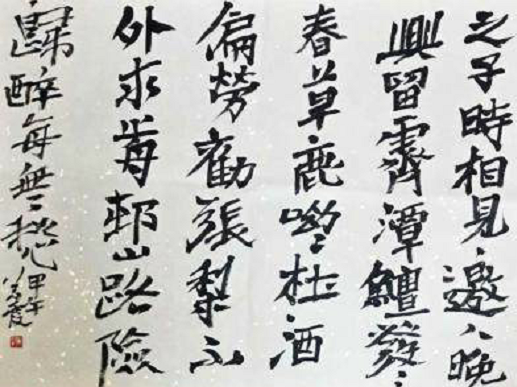 之子時相見邀人晚
興留霽潭鱣發々
春草鹿呦々杜酒
偏勞勸張梨不
外求歬邨山路險
歸醉每無愁
甲午